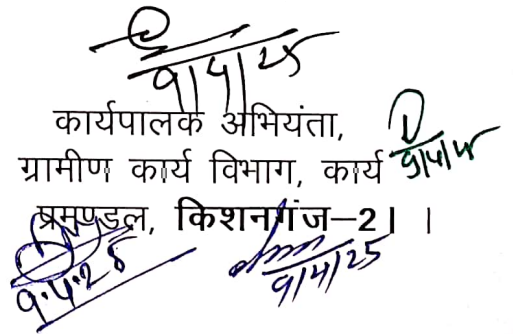 9/4/25
कार्यपालक अभियंता,
ग्रामीण कार्य विभाग, कार्य 9/4/25
प्रमण्डल, किशनगंज–2। ।
9.4.25 9/4/25